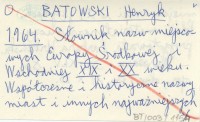 BATOWSKI Henryk
1964. Słownik nazw miejsco-
wych Europy Środkowej i
Wschodniej XIX i XX wieku.
Współczesne i historyczne nazwy
miast i innych najważniejszych